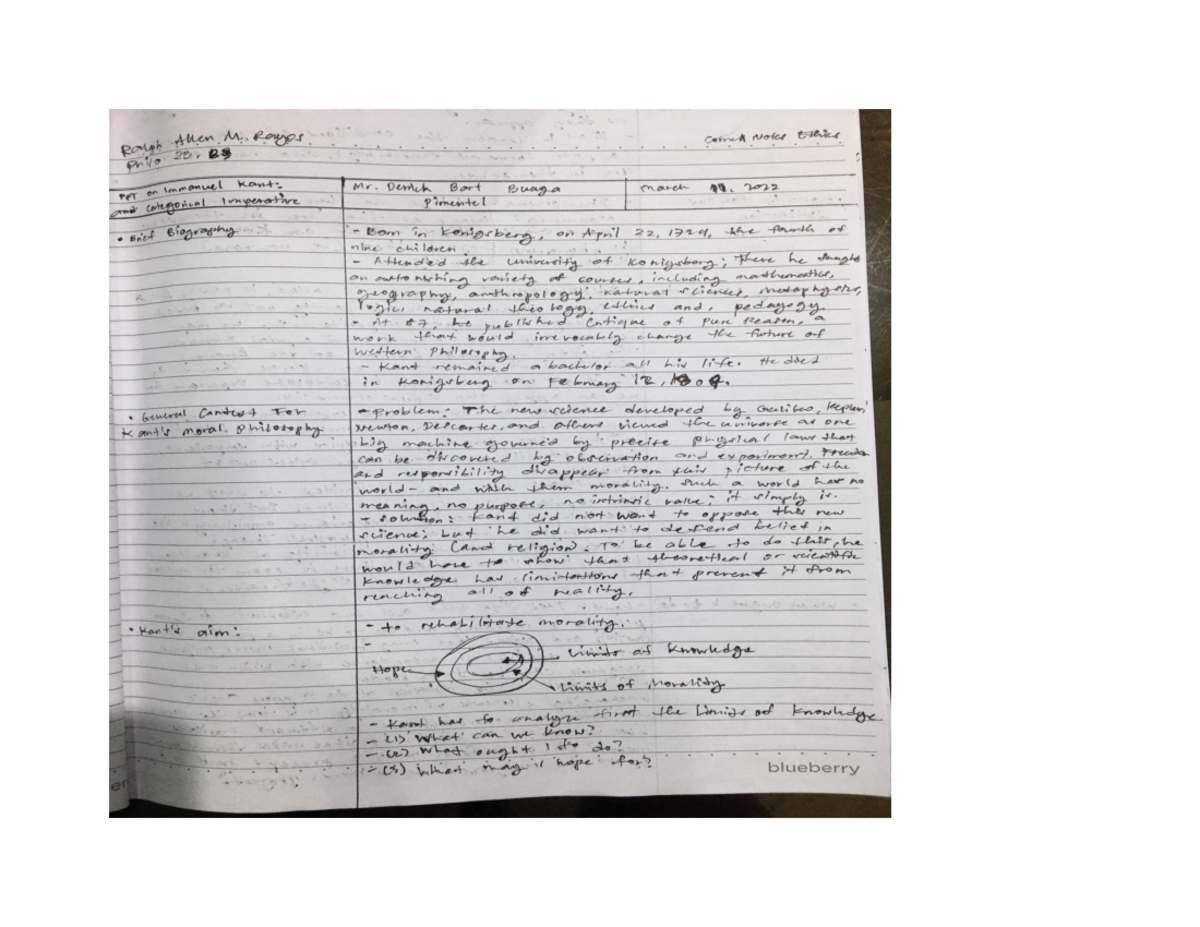 Ralph Allen M. Rayos
Cornell Notes Ethics
Philo 23,
PPT on Immanuel Kant:
and Categorical Imperative
Mr. Derrick Bart Buaga
Pimentel
March 2022
• Brief Biography
- Born in Konigsberg, on April 22, 1724, the fourth of
nine children.
- Attended the university of Konigsberg; There he taught
an astonishing variety of courses, including mathematics,
geography, anthropology, natural sciences, metaphysics,
logic, natural theology, ethics and, pedagogy.
- At 57, he published Critique of Pure Reason, a
work that would irrevocably change the future of
western Philosophy.
- Kant remained a bachelor all his life. He died
in Konigsberg on February 12,
• General Context For
Kant's Moral Philosophy
- Problem: The new science developed by Galileo, Kepler,
Newton, Descartes, and others viewed the universe as one
big machine governed by precise physical laws that
can be discovered by observation and experiment. Freedom
and responsibility disappear from this picture of the
world - and with them morality. Such a world has no
meaning, no purpose, no intrinsic value; it simply is.
- Solution: Kant did not want to oppose this new
science; but he did want to defend belief in
morality (and religion). To be able to do this, he
would have to show that theoretical or scientific
knowledge has limitations that prevent it from
reaching all of reality.
• Kant's aim:
- to rehabilitate morality.
-
Limits of Knowledge
Hope
Limits of Morality
- Kant has to analyze first the Limits of Knowledge
- (1) What can we know?
- (2) What ought I to do?
- (3) What may I hope for?
blueberry